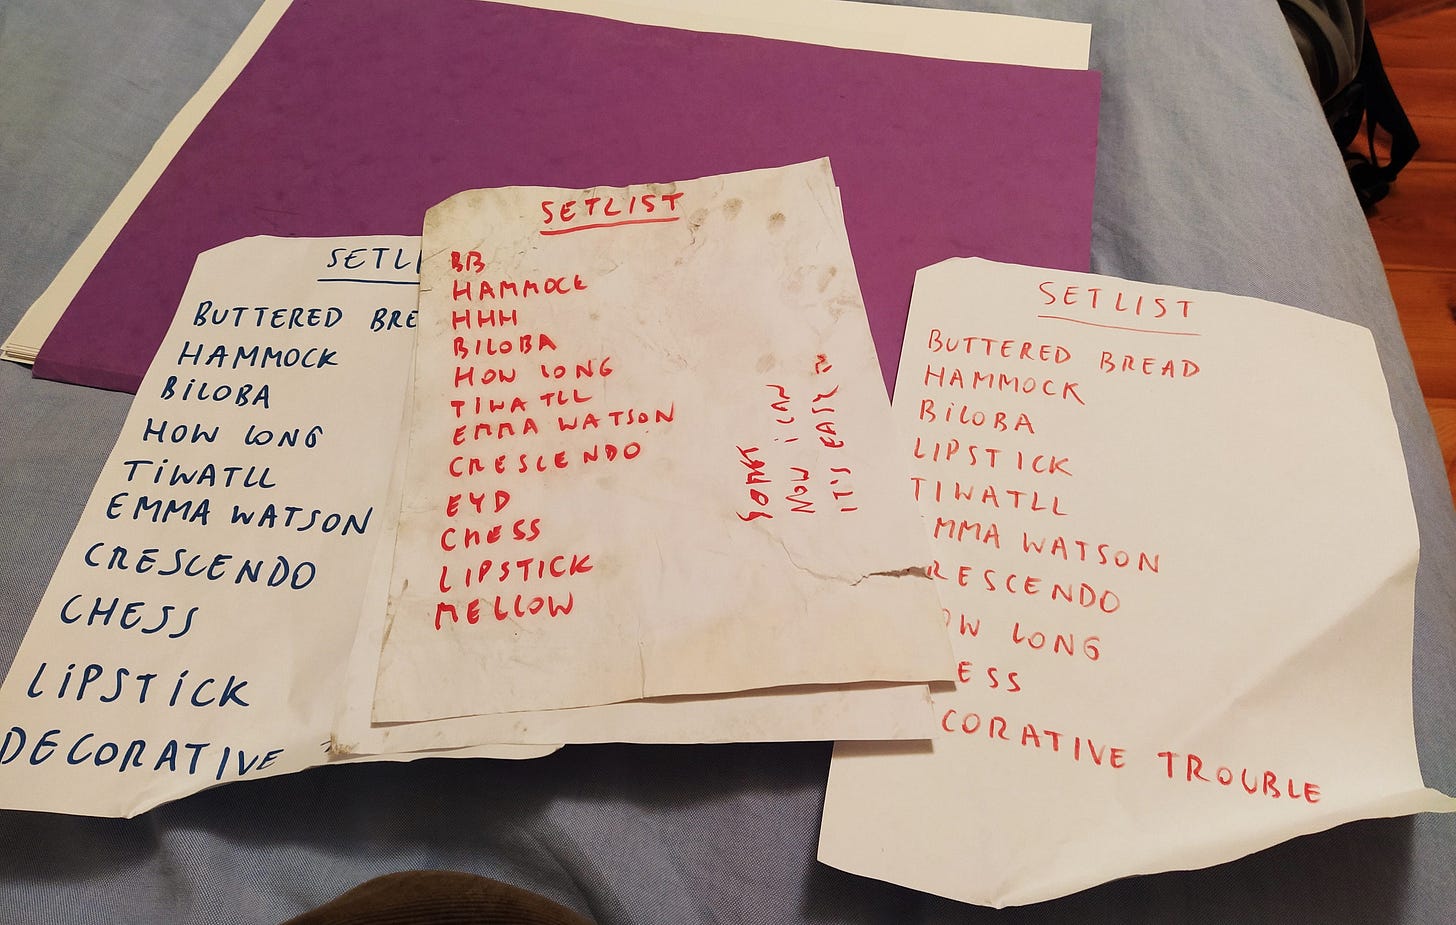 SETLI
BUTTERED BRE
HAMMOCK
BiLOBA
HOW LONG
TiWATLL
EMMA WATSON
CRESCENDO
CHESS
LiPSTiCK
DECORATIVE
SETLIST
BB
HAMMOCK
HHH
BILOBA
HOW LONG
TIWATLL
EMMA WATSON
CRESCENDO
EYD
CHESS
LIPSTICK
MELLOW
NOW i CAN
IT'S EASY
SETLIST
BUTTERED BREAD
HAMMOCK
BiLOBA
LIPSTICK
TIWATLL
MMA WATSON
RESCENDO
OW LONG
ESS
CORATIVE TROUBLE